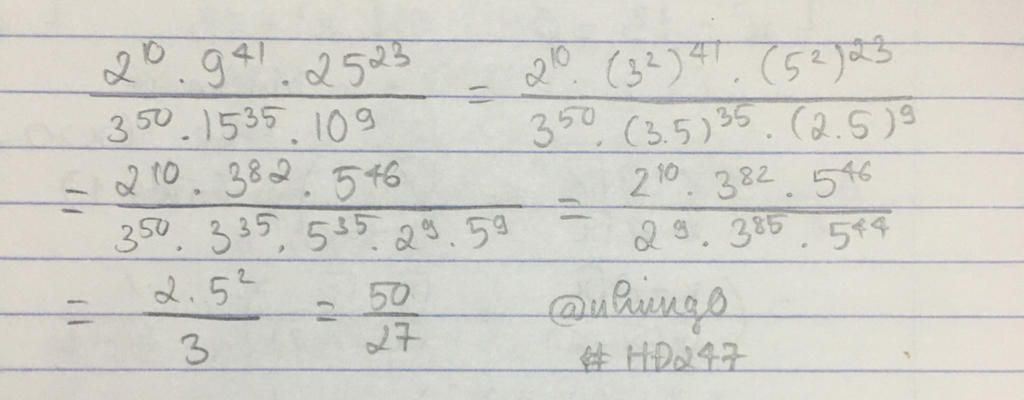 2^10 . 9^41 . 25^23 / 3^50 . 15^35 . 10^9 = 2^10 . (3^2)^41 . (5^2)^23 / 3^50 . (3.5)^35 . (2.5)^9
= 2^10 . 3^82 . 5^46 / 3^50 . 3^35 . 5^35 . 2^9 . 5^9 = 2^10 . 3^82 . 5^46 / 2^9 . 3^85 . 5^44
= 2.5^2 / 3 = 50 / 27
#HD247